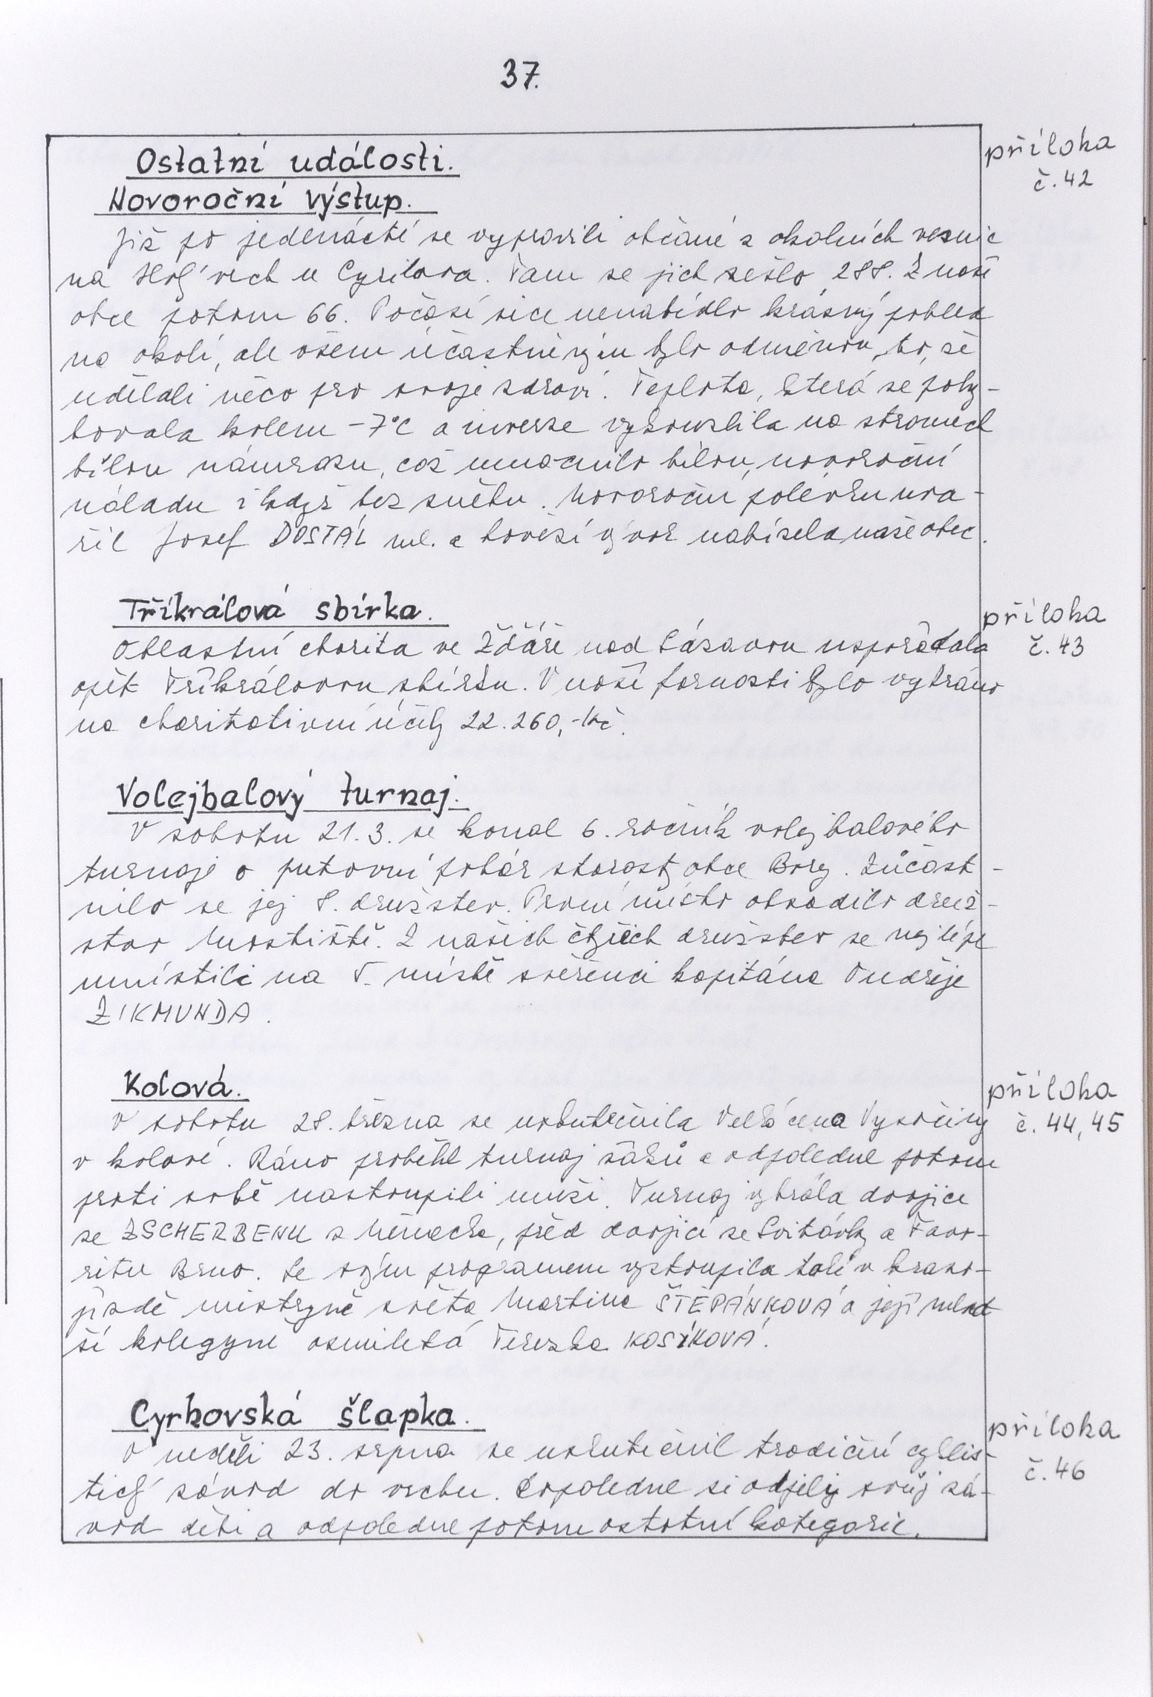 37.
Ostatní události.
příloha
č. 42
Novoroční výstup.
Již po jedenácté se vypravili občané z okolních vesnic
na vrch u Cyrilova. Tam se jich sešlo 288. Z naší
obce potom 66. Počasí sice nenabídlo krásný pohled
na okolí, ale všem účastněným bylo odměnou to, že
udělali něco pro svoje zdraví. Teplota, která se pohy-
bovala kolem -7°C a inverze vykouzlila na stromech
bílou námrazu, což umocnilo bílou, novoroční
náladu i když bez sněhu. Novoroční polévku uva-
řil Josef DOSTÁL ml. a hovězí vývar nabízela naše obec.
Tříkrálová sbírka.
příloha
č. 43
Oblastní charita ve Žďáře nad Sázavou uspořádala
opět Tříkrálovou sbírku. V naší farnosti bylo vybráno
na charitativní účely 22.260,-Kč.
Volejbalový turnaj.
V sobotu 21.3. se konal 6. ročník volejbalového
turnaje o putovní pohár starosty obce Bory. Zúčast-
nilo se jej 8. družstev. První místo obsadilo druž-
stvo Mostiště. Z našich čtyřech družstev se nejlépe
umístili na 5. místě svěřenci kapitána Ondřeje
ZIKMUNDA.
Kolová.
příloha
č. 44, 45
V sobotu 28. března se uskutečnila Velká cena Vysočiny
v kolové. Ráno proběhl turnaj žáků a odpoledne potom
proti sobě nastoupili muži. Turnaj vyhrála dvojice
ze ZSCHERBENU z Německa, před dvojicí ze Svitávky a Favo-
ritu Brno. Se svým programem vystoupila také v kraso-
jízdě mistryně světa Martina ŠTĚPÁNKOVÁ a její mlad-
ší kolegyně osmiletá Terezka KOSÍKOVÁ.
Cyrhovská šlapka.
příloha
č. 46
V neděli 23. srpna se uskutečnil tradiční cyklis-
tický závod do vrchu. Dopoledne si odjely svůj zá-
vod děti a odpoledne potom ostatní kategorie.